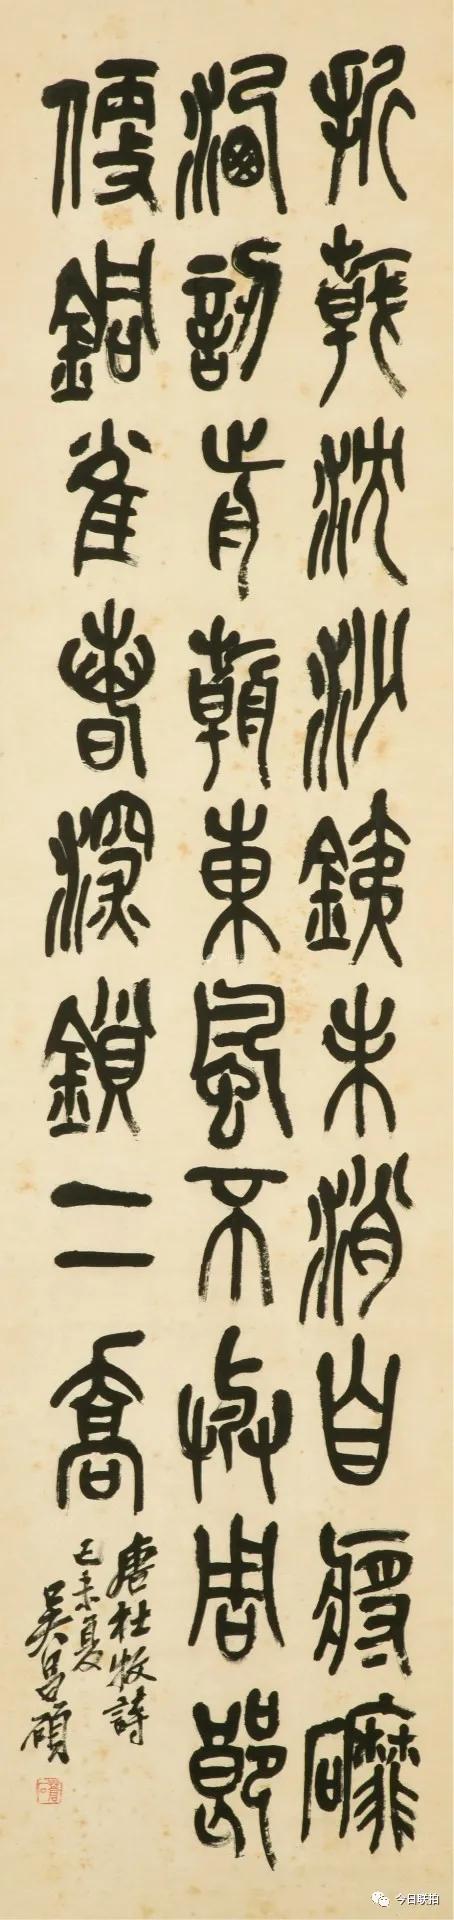 折戟沈沙銕未消自將磨
洗認前朝東風不與周郎
便銅雀春深鎖二喬
唐杜牧詩
己未夏
吳昌碩
今日联拍